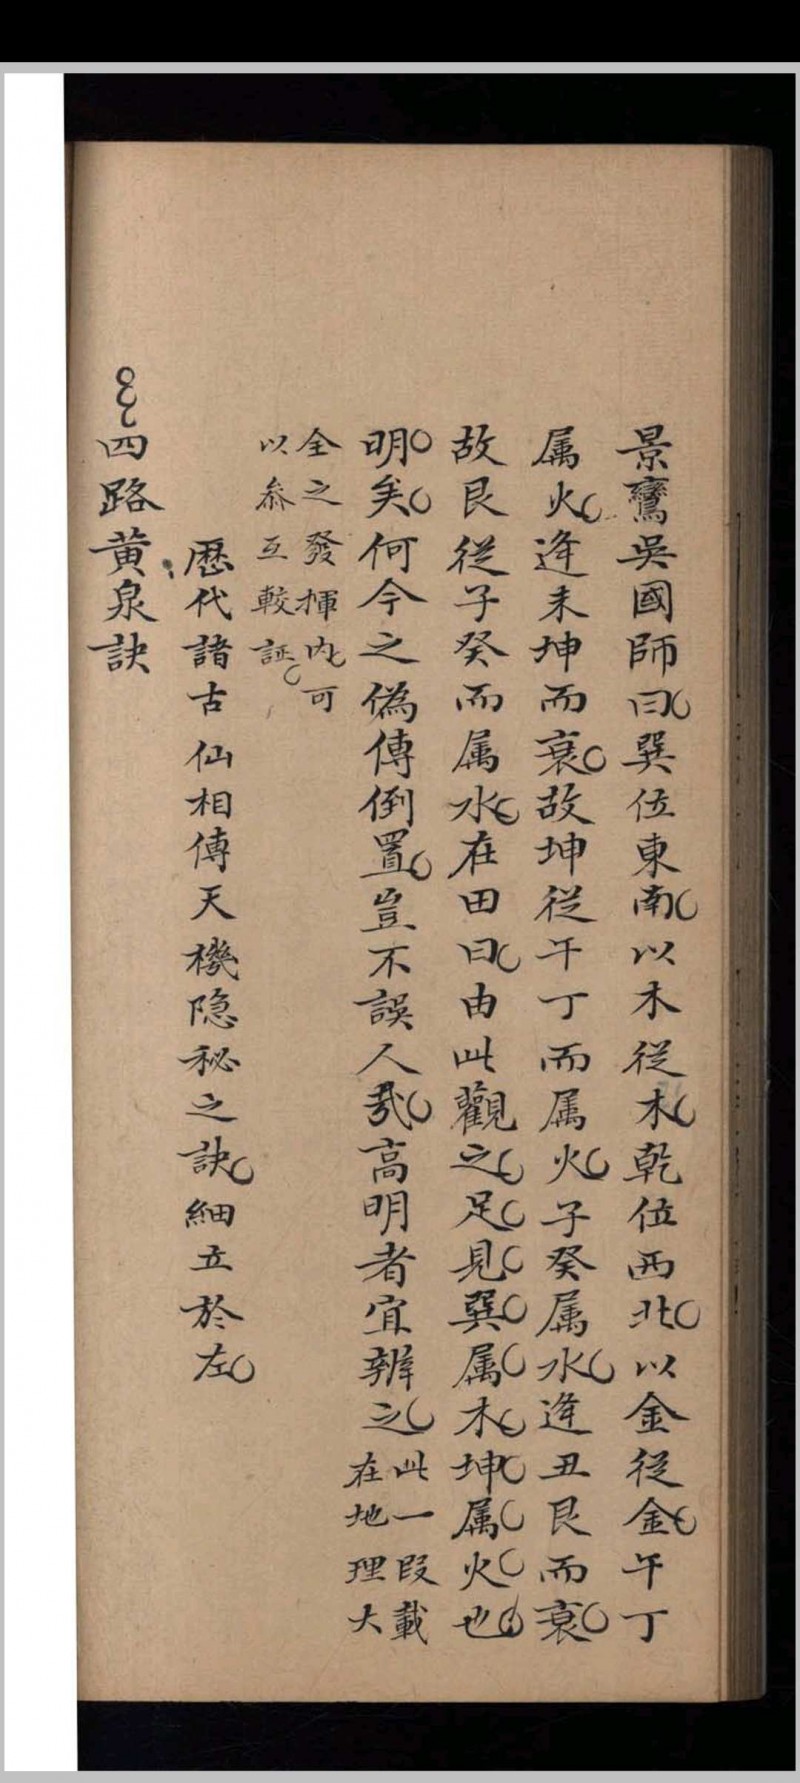 景鸞吳國師曰巽位東南以木從木乾位西北以金從金午丁
属火逄未坤而衰故坤從午丁而属火子癸属水逄丑艮而衰
故艮從子癸而属水在田曰由此觀之足見巽属木坤属火也
明矣何今之偽傳倒置豈不誤人哉高明者宜辨之此一段載
在地理大
全之發揮内可
以叅互較証
歷代諸古仙相傳天機隐秘之訣細立於左
四路黄泉訣